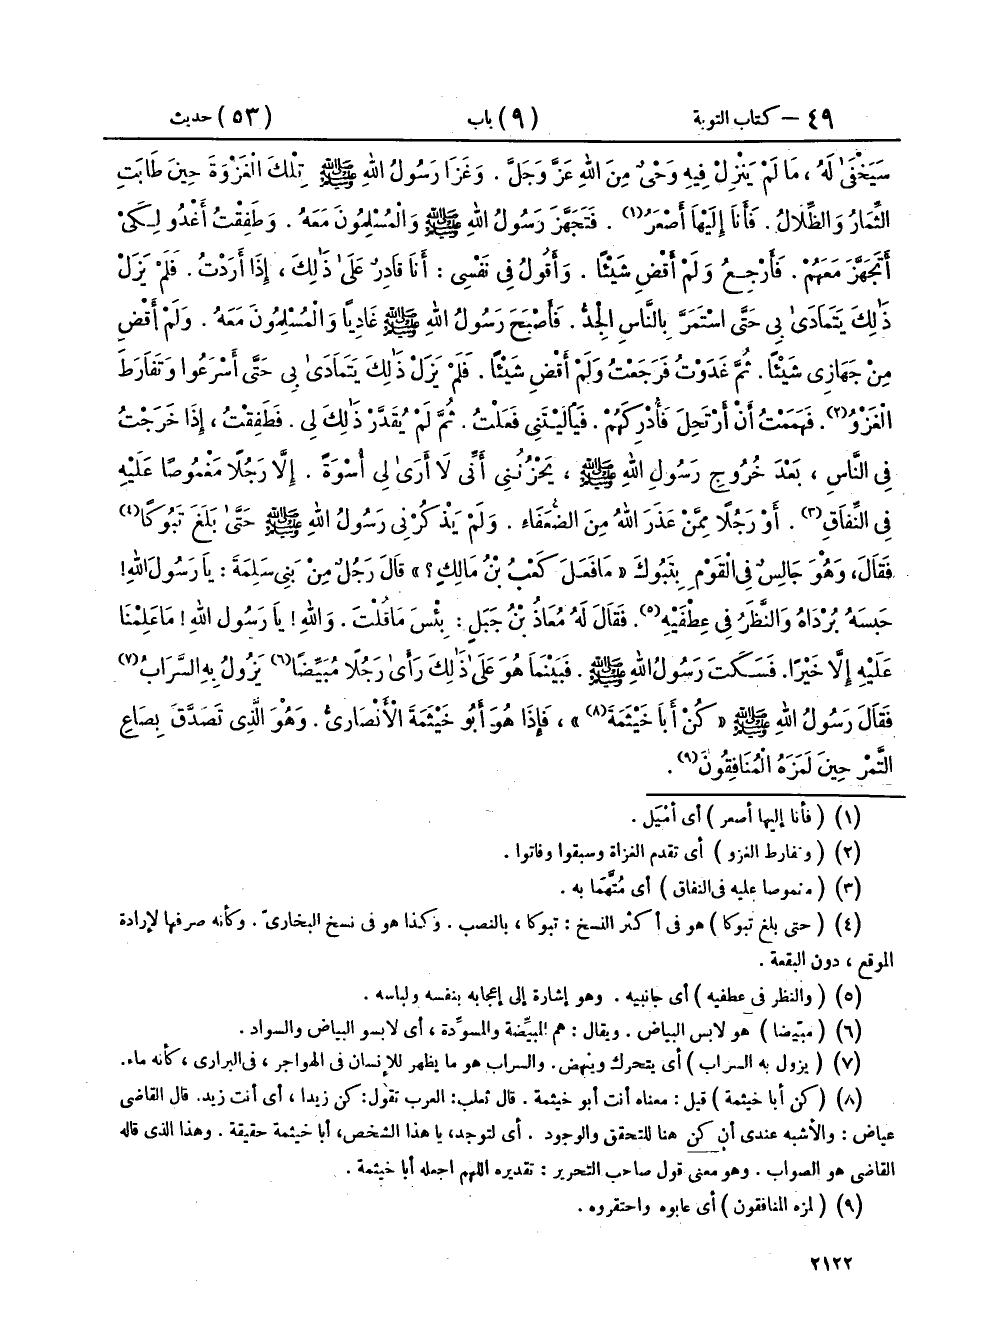 ٤٩ – كتاب التوبة (٩) باب (٥٣) حديث
سَيَخْفَىٰ لَهُ ، مَا لَمْ يَنْزِلْ فِيهِ وَحْىٌ مِنَ اللهِ عَزَّ وَجَلَّ . وَغَزَا رَسُولُ اللهِ ﷺ تِلْكَ الْغَزْوَةَ حِينَ طَابَتِ
الثِّمَارُ وَالظِّلَالُ . فَأَنَا إِلَيْهَا أَصْعَرُ(١) . فَتَجَهَّزَ رَسُولُ اللهِ ﷺ وَالْمُسْلِمُونَ مَعَهُ . وَطَفِقْتُ أَغْدُو لِكَىْ
أَتَجَهَّزَ مَعَهُمْ . فَأَرْجِعُ وَلَمْ أَقْضِ شَيْئًا . وَأَقُولُ فِى نَفْسِى : أَنَا قَادِرٌ عَلَىٰ ذَٰلِكَ ، إِذَا أَرَدْتُ . فَلَمْ يَزَلْ
ذَٰلِكَ يَتَمَادَىٰ بِى حَتَّى اسْتَمَرَّ بِالنَّاسِ الْجِدُّ . فَأَصْبَحَ رَسُولُ اللهِ ﷺ غَادِيًا وَالْمُسْلِمُونَ مَعَهُ . وَلَمْ أَقْضِ
مِنْ جَهَازِى شَيْئًا . ثُمَّ غَدَوْتُ فَرَجَعْتُ وَلَمْ أَقْضِ شَيْئًا . فَلَمْ يَزَلْ ذَٰلِكَ يَتَمَادَىٰ بِى حَتَّى أَسْرَعُوا وَتَفَارَطَ
الْغَزْوُ(٢) . فَهَمَمْتُ أَنْ أَرْتَحِلَ فَأُدْرِكَهُمْ . فَيَالَيْتَنِى فَعَلْتُ . ثُمَّ لَمْ يُقَدَّرْ ذَٰلِكَ لِى . فَطَفِقْتُ ، إِذَا خَرَجْتُ
فِى النَّاسِ ، بَعْدَ خُرُوجِ رَسُولِ اللهِ ﷺ ، يَحْزُنُنِى أَنِّى لَا أَرَىٰ لِى أُسْوَةً . إِلَّا رَجُلًا مَغْمُوصًا عَلَيْهِ
فِى النِّفَاقِ(٣) . أَوْ رَجُلًا مِمَّنْ عَذَرَ اللهُ مِنَ الضُّعَفَاءِ . وَلَمْ يَذْكُرْنِى رَسُولُ اللهِ ﷺ حَتَّىٰ بَلَغَ تَبُوكًا(٤)
فَقَالَ، وَهُوَ جَالِسٌ فِى الْقَوْمِ بِتَبُوكَ « مَا فَعَلَ كَعْبُ بْنُ مَالِكٍ ؟ » قَالَ رَجُلٌ مِنْ بَنِى سَلِمَةَ : يَا رَسُولَ اللهِ !
حَبَسَهُ بُرْدَاهُ وَالنَّظَرُ فِى عِطْفَيْهِ(٥) . فَقَالَ لَهُ مُعَاذُ بْنُ جَبَلٍ : بِئْسَ مَا قُلْتَ . وَاللهِ ! يَا رَسُولَ اللهِ ! مَا عَلِمْنَا
عَلَيْهِ إِلَّا خَيْرًا. فَسَكَتَ رَسُولُ اللهِ ﷺ . فَبَيْنَمَا هُوَ عَلَىٰ ذَٰلِكَ رَأَىٰ رَجُلًا مُبَيِّضًا(٦) يَزُولُ بِهِ السَّرَابُ(٧)
فَقَالَ رَسُولُ اللهِ ﷺ « كُنْ أَبَا خَيْثَمَةَ(٨) » ، فَإِذَا هُوَ أَبُو خَيْثَمَةَ الْأَنْصَارِىُّ . وَهُوَ الَّذِى تَصَدَّقَ بِصَاعِ
التَّمْرِ حِينَ لَمَزَهُ الْمُنَافِقُونَ(٩) .
(١) ( فأنا إليها أصعر ) أى أَمْيَل .
(٢) ( وتفارط الغزو ) أى تقدم الغزاة وسبقوا وفاتوا .
(٣) ( مغموصا عليه فى النفاق ) أى مُتَّهَمًا به .
(٤) ( حتى بلغ تبوكا ) هو فى أكثر النسخ : تبوكا ، بالنصب . وكذا هو فى نسخ البخارىّ . وكأنه صرفها لإرادة
الموقع ، دون البقعة .
(٥) ( والنظر فى عطفيه ) أى جانبيه . وهو إشارة إلى إعجابه بنفسه ولباسه .
(٦) ( مبّيضا ) هو لابس البياض . ويقال : هم المبيِّضة والمسوِّدة ، أى لابسو البياض والسواد .
(٧) ( يزول به السراب ) أى يتحرك وينهض . والسراب هو ما يظهر للإنسان فى الهواجر ، فى البرارى ، كأنه ماء.
(٨) ( كن أبا خيثمة ) قيل : معناه أنت أبو خيثمة . قال ثعلب: العرب تقول: كن زيدا ، أى أنت زيد. قال القاضى
عياض : والأشبه عندى أن كن هنا للتحقق والوجود . أى لتوجد، يا هذا الشخص، أبا خيثمة حقيقة . وهذا الذى قاله
القاضى هو الصواب . وهو معنى قول صاحب التحرير : تقديره اللهم اجعله أبا خيثمة .
(٩) ( لمزه المنافقون ) أى عابوه واحتقروه .
٢١٢٢